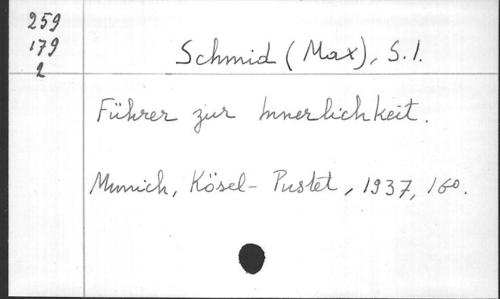 259
179
2
Schmid (Max), S.I.
Führer zur Innerlichkeit.
Munich, Kösel-Pustet, 1937, 160.